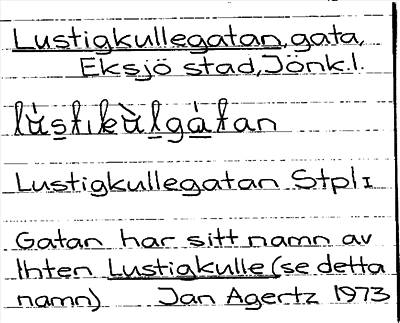 Lustigkullegatan, gata,
Eksjö stad, Jönk.l.
Lustigkullegatan Stpl I
Gatan har sitt namn av
Ihten Lustigkulle (se detta
namn) Jan Agertz 1973